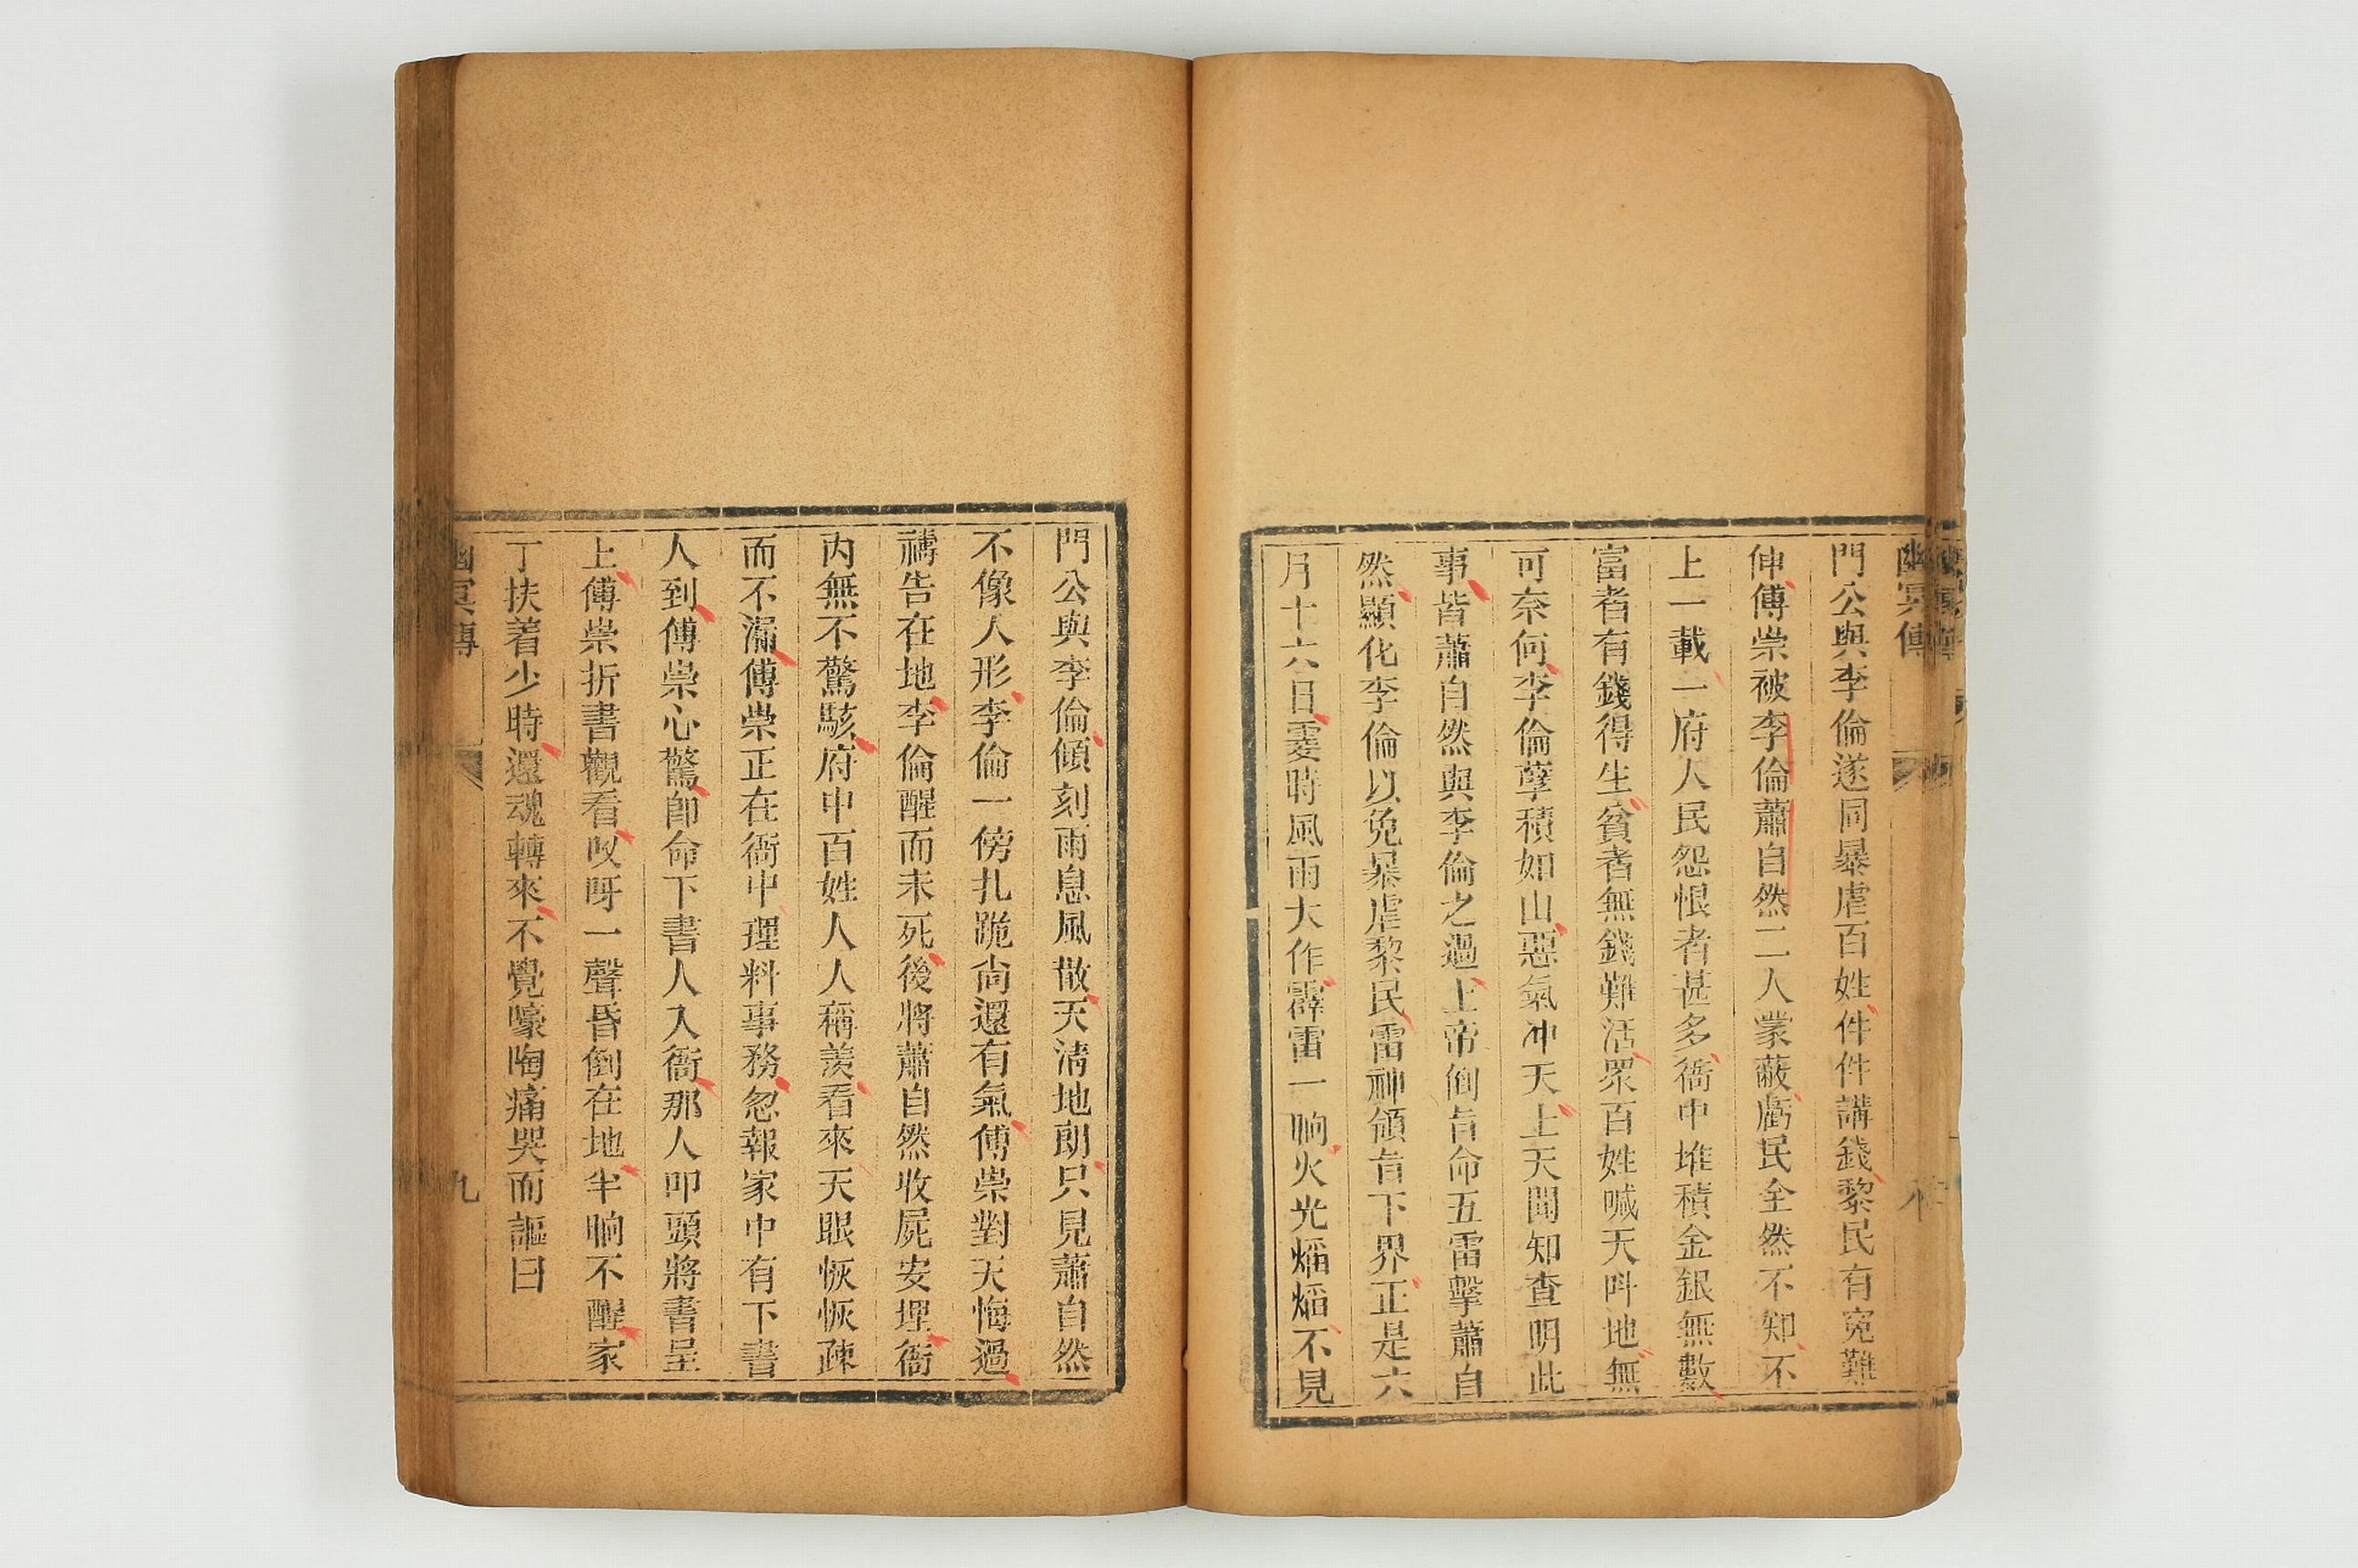 幽冥傳
門公與李倫遂同暴虐百姓件件講錢黎民有寃難
伸傅崇被李倫蕭自然二人蒙蔽虧民全然不知不
上一載一府人民怨恨者甚多衙中堆積金銀無數
富者有錢得生貧者無錢難活眾百姓喊天呌地無
可奈何李倫孽積如山惡氣冲天上天聞知查明此
事皆蕭自然與李倫之過上帝勅旨命五雷擊蕭自
然顯化李倫以免暴虐黎民雷神領旨下界正是六
月十六日霎時風雨大作霹雷一响火光熖熖不見
門公與李倫傾刻雨息風散天清地朗只見蕭自然
不像人形李倫一傍扎跪尚還有氣傅崇對天悔過
禱告在地李倫醒而未死後將蕭自然收屍安埋衙
内無不驚駭府中百姓人人稱羨看來天眼恢恢疎
而不漏傅崇正在衙中理料事務忽報家中有下書
人到傅崇心驚卽命下書人入衙那人叩頭將書呈
上傅崇折書觀看哎呀一聲昏倒在地半晌不醒家
丁扶着少時還魂轉來不覺嚎啕痛哭而謳曰
幽冥傳
九